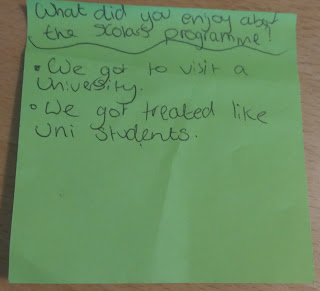 What did you enjoy about
the scolars programme!
• We got to visit a
University.
• We got treated like
Uni Students.